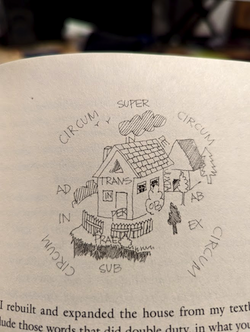 SUPER
CIRCUM
CIRCUM
TRANS
AD
IN
IN
AB
EX
PRAE
CIRCUM
CIRCUM
SUB
I rebuilt and expanded the house from my textb
lude those words that did double duty, in what you